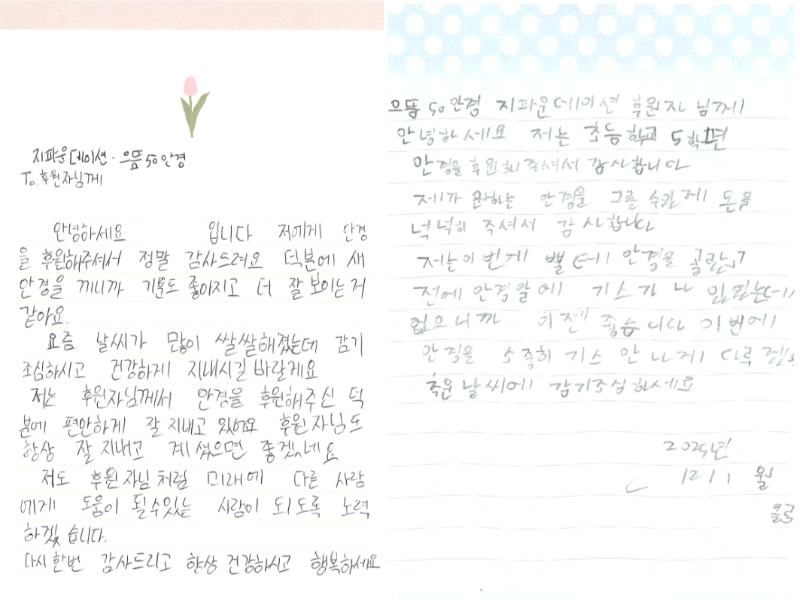 지파운데이션·으뜸50안경
To.후원자님께
안녕하세요 입니다 저에게 안경
을 후원해주셔서 정말 감사드려요 덕분에 새
안경을 끼니까 기분도 좋아지고 더 잘 보이는거
같아요.
요즘 날씨가 많이 쌀쌀해졌는데 감기
조심하시고 건강하게 지내시길 바랄게요
저는 후원자님께서 안경을 후원해주신 덕
분에 편안하게 잘 지내고 있어요 후원자님도
항상 잘 지내고 계셨으면 좋겠네요
저도 후원자님처럼 미래에 다른 사람
에게 도움이 될수있는 사람이 되도록 노력
하겠습니다.
다시한번 감사드리고 항상 건강하시고 행복하세요
으뜸50안경 지파운데이션 후원자님께
안녕하세요 저는 초등학교 5학년
안경을 후원해주셔서 감사합니다
제가 원하는 안경을 고를 수있게 돈을
넉넉히 주셔서 감사합니다
저는이번에 뿔테 안경을 골랐는데
전에 안경알에 기스가 나 있었는데
없으니까 이젠 좋습니다 이번에
안경을 소중히 기스 안 나게 다루
추운날씨에 감기조심하세요
12/1 월